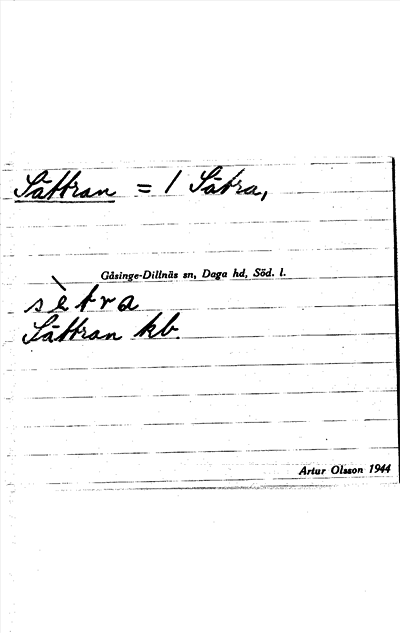 Sättran = 1 Sätra,
Gåsinge-Dillnäs sn, Daga hd, Söd. l.
sètra
Sättran kb.
Artur Olsson 1944